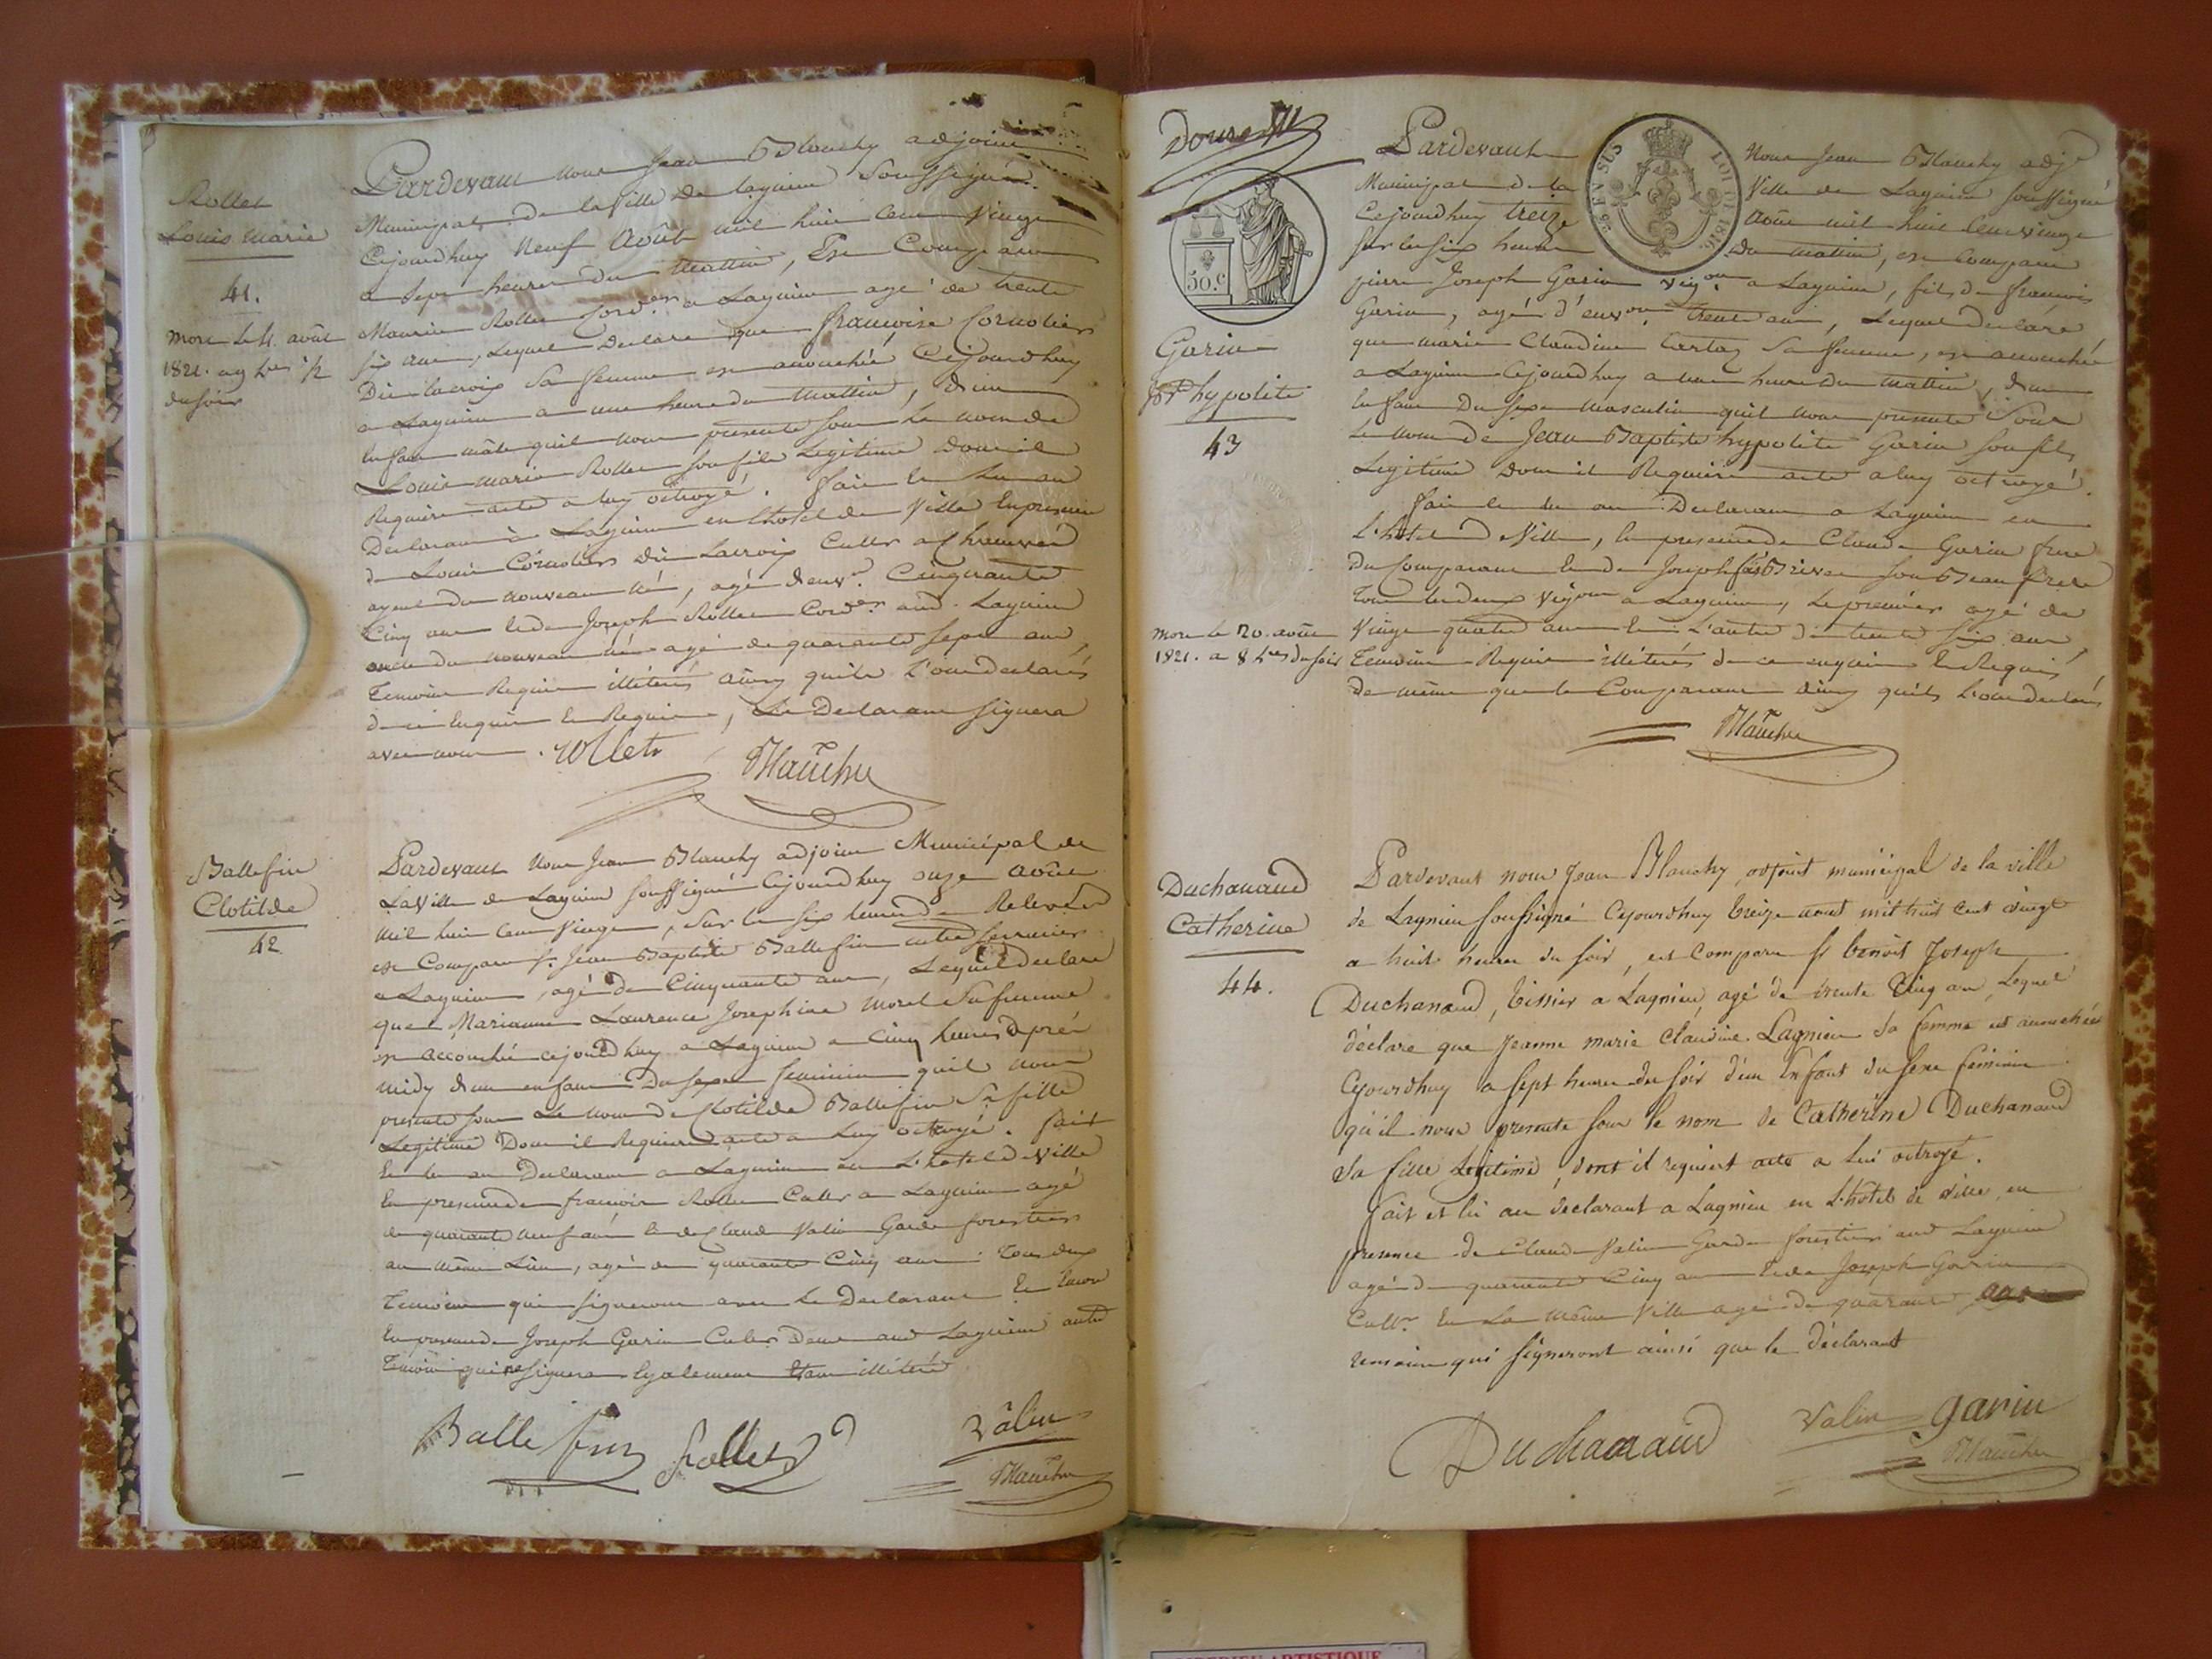 Rollet
Louis Marie
41.
mort le 4. août
1821. a 9 h.es 1/2
du soir
Pardevant nous Jean Blanchy adjoint
Municipal de la Ville de Lagnieu Soussigné.
Cejourdhuy Neuf Août mil huit Cent Vingt
a Sept heures du Mattin, Est Comparu
Maurice Rollet Cord.er a Lagnieu agé de trente
six ans, Lequel Declare que françoise Cornotier
Dit lacroix Sa femme est accouchée Cejourdhuy
a Lagnieu a une heure du Mattin, d'un
Enfant mâle quil nous presente sous Le nom de
Louis marie Rollet son fils Legitime Dont il
Requiert acte a luy octroyé. fait et Lu au
Declarant à Lagnieu en l'hotel de Ville En presence
de Louis Cornotier Dit Lacroix Cult.r a
ayeul du nouveau né, agé d'env.n Cinquante
Cinq ans et de Joseph Rollet Cord.er aud. Lagnieu
oncle du nouveau né agé de quarante sept ans,
Temoins Requis illiterés ainsy quils L'ont declarés
de ce Enquis et Requis, Le Declarant signera
avec nous. Rollet
Blanchy
Ballefin
Clotilde
42
Pardevant Nous Jean Blanchy adjoint Municipal de
La Ville de Lagnieu soussigné Cejourdhuy onze Août
Mil huit Cent Vingt, Sur les six heures de Relevée
est Comparu s. Jean Baptiste Ballefin serrurier
a Lagnieu, agé de Cinquante ans, Lequel declare
que Marianne Laurence Josephine Morel Sa femme
est accouchée cejourdhuy a Lagnieu a Cinq heures après
midy d'un enfant Du sexe feminin quil nous
presente sous Le nom de Clotilde Ballefin Sa fille
Legitime Dont il Requiert acte a Luy octroyé. fait
et lu au Declarant a Lagnieu en L'hotel de Ville
En presence de francois Rollet Cult.r a Lagnieu agé
de quarante neuf ans et de Claude Valin Garde forestier
au même Lieu, agé de quarante Cinq ans Tous deux
Temoins qui signeront avec Le Declarant et Encore
En presence de Joseph Garin Cult.r Dem.t aud Lagnieu autre
Temoin qui ne signera Egalement Etant illiteré
Balle fin Rollet
Valin
Blanchy
50.c
25 EN SUS
LOI DE 1816.
Garin
J.n B.te hypolite
43
mort le 20. août
1821. a 8 h.es du soir
Pardevant Nous Jean Blanchy adj.t
Municipal de la Ville de Lagnieu soussigné
Cejourdhuy treize Août mil huit Cent Vingt
sur les six heures Du Mattin, est Comparu
pierre Joseph Garin vig.on a Lagnieu, fils de francois
Garin, agé d'env.on trente ans, Lequel declare
que marie Claudine Cartaz Sa femme, est accouchée
a Lagnieu Cejourdhuy a une heure du Mattin, d'un
Enfant Du sexe Masculin quil nous presente Sous
Le nom de Jean Baptiste hypolite Garin son fils
Legitime Dont il Requiert acte a luy octroyé.
fait et lu au Declarant a Lagnieu en
L'hotel de Ville, En presence de Claude Garin frere
Du Comparant et de Joseph Brivet son Beau frere
Tous les deux vig.ons a Lagnieu, Le premier agé de
Vingt quatre ans et L'autre de trente six ans
Temoins Requis illiterés de ce enquis et Requis
de même que le Comparant ainsy quils L'ont declarés
Blanchy
Duchanaud
Catherine
44.
Pardevant nous Jean Blanchy, adjoint municipal de la ville
de Lagnieu soussigné Cejourdhuy treize aout mil huit cent vingt
a huit heures du soir, est comparu s.r benoit Joseph
Duchanaud, tissier a Lagnieu, agé de trente Cinq ans, Lequel
déclare que Jeanne marie claudine Lagnieu Sa femme est accouchée
Cejourdhuy a sept heures du soir d'un Enfant du sexe féminin
qu'il nous presente sous le nom de Catherine Duchanaud
Sa fille Légitime, dont il requiert acte a lui octroyé.
fait et lu au declarant a Lagnieu en L'hotel de ville, en
presence de Claude Valin Garde forestier aud Lagnieu
agé de quarante Cinq ans et de Joseph Garin
Cult.r En La même Ville agé de quarante ans
temoins qui signeront ainsi que le déclarant
Duchanaud
Valin garin
Blanchy